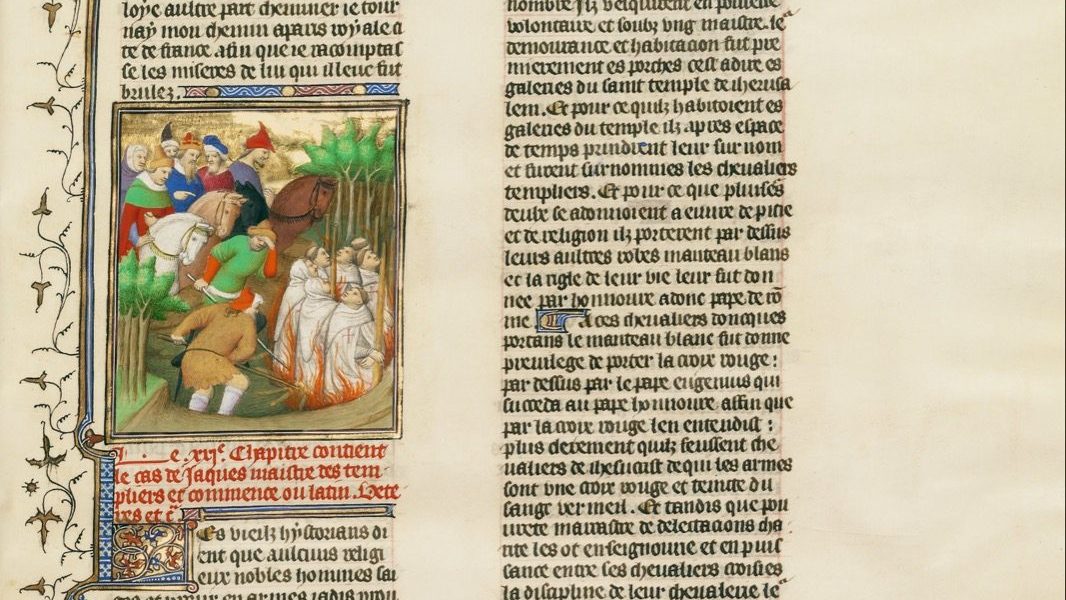 loye aultre part cheminer ie tour
nay mon chemin a paris royale ci
te de france. afin que ie racomptas
se les miseres de lui qui illeuc fut
brulez.
Le .xxi.e Chapitre contient
le cas de Jaques maistre des tem
pliers et commence ou latin. Vete
res et c.
Les vieilz hystorians di
ent que aulcuns religi
eux nobles hommes sai
nombre Ilz vesquirent en pouvrete
voluntaire et soubz ung maistre. le
demourance et habitacion fut pre
mierement es porches cest a dire es
galeries du saint temple de iherusa
lem. Et pour ce quilz habitoient es
galeries du temple ilz apres espace
de temps prindrent leur surnom
et furent surnommes les chevaliers
templiers. Et pour ce que pluises
deulx se adonnoient a euvre de pitie
et de religion ilz porterent par dessus
leurs aultres robes manteau blans
et la rigle de leur vie leur fut don
nee par honnoure adonc pape de ro
me A ces chevaliers doncques
portans le manteau blanc fut donne
previlege de porter la croix rouge :
par dessus par le pape eugenius qui
succeda au pape honnoure affin que
par la croix rouge len entendist :
plus clerement quilz feussent che
valiers de ihesucrist de qui les armes
sont une croix rouge et teincte du
sang vermeil. Et tandis que pou
vrete marrastre de delectacions cha
rite les ot en seignourie et en puis
sance entre ses chevaliers croisies
la discipline de leur chevalerie le